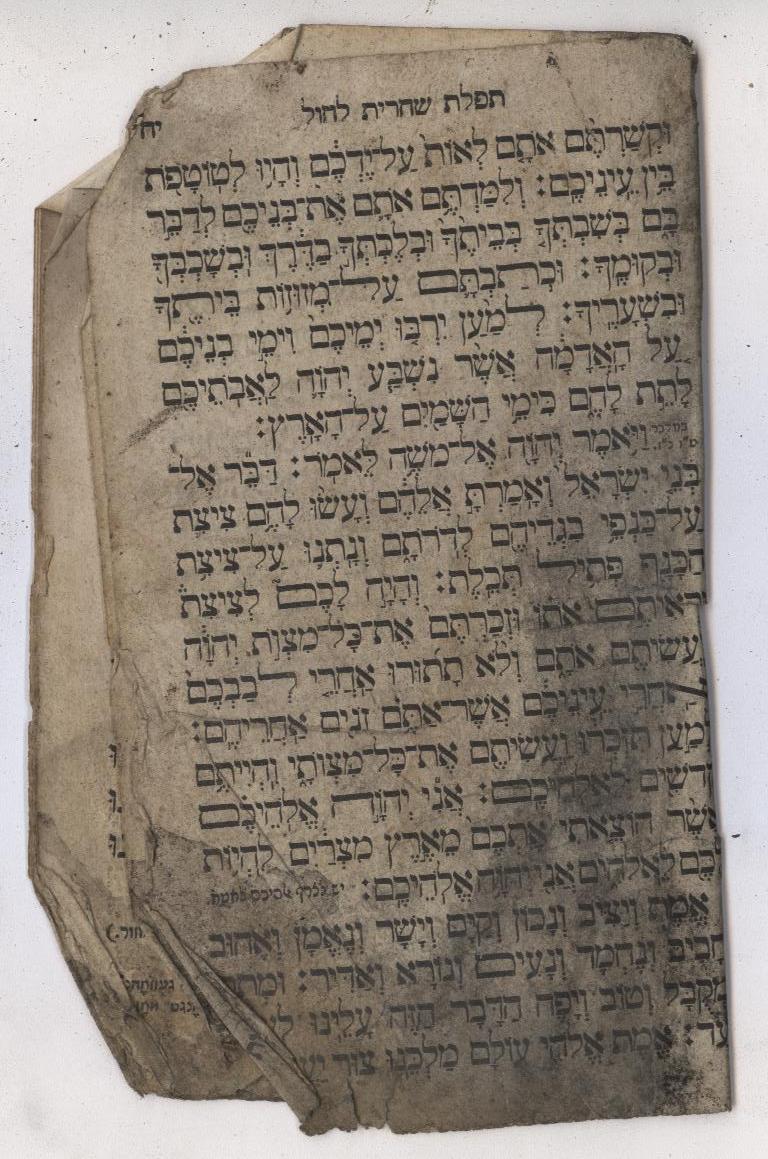 תפלת שחרית לחול
יח
וּקְשַׁרְתֶּם אֹתָם לְאוֹת עַל־יֶדְכֶם וְהָיוּ לְטוֹטָפֹת
בֵּין עֵינֵיכֶם׃ וְלִמַּדְתֶּם אֹתָם אֶת־בְּנֵיכֶם לְדַבֵּר
בָּם בְּשִׁבְתְּךָ בְּבֵיתֶךָ וּבְלֶכְתְּךָ בַדֶּרֶךְ וּבְשָׁכְבְּךָ
וּבְקוּמֶךָ׃ וּכְתַבְתָּם עַל־מְזוּזוֹת בֵּיתֶךָ
וּבִשְׁעָרֶיךָ׃ לְמַעַן יִרְבּוּ יְמֵיכֶם וִימֵי בְנֵיכֶם
עַל הָאֲדָמָה אֲשֶׁר נִשְׁבַּע יְהֹוָה לַאֲבֹתֵיכֶם
לָתֵת לָהֶם כִּימֵי הַשָּׁמַיִם עַל־הָאָרֶץ׃
במדבר וַיֹּאמֶר יְהֹוָה אֶל־מֹשֶׁה לֵּאמֹר׃ דַּבֵּר אֶל־
בְּנֵי יִשְׂרָאֵל וְאָמַרְתָּ אֲלֵהֶם וְעָשׂוּ לָהֶם צִיצִת
עַל־כַּנְפֵי בִגְדֵיהֶם לְדֹרֹתָם וְנָתְנוּ עַל־צִיצִת
הַכָּנָף פְּתִיל תְּכֵלֶת׃ וְהָיָה לָכֶם לְצִיצִת
וּרְאִיתֶם אֹתוֹ וּזְכַרְתֶּם אֶת־כָּל־מִצְוֹת יְהֹוָה
וַעֲשִׂיתֶם אֹתָם וְלֹא תָתוּרוּ אַחֲרֵי לְבַבְכֶם
וְאַחֲרֵי עֵינֵיכֶם אֲשֶׁר־אַתֶּם זֹנִים אַחֲרֵיהֶם׃
לְמַעַן תִּזְכְּרוּ וַעֲשִׂיתֶם אֶת־כָּל־מִצְוֹתָי וִהְיִיתֶם
קְדֹשִׁים לֵאלֹהֵיכֶם׃ אֲנִי יְהֹוָה אֱלֹהֵיכֶם
אֲשֶׁר הוֹצֵאתִי אֶתְכֶם מֵאֶרֶץ מִצְרַיִם לִהְיוֹת
לָכֶם לֵאלֹהִים אֲנִי יְהֹוָה אֱלֹהֵיכֶם׃
אֱמֶת וְיַצִּיב וְנָכוֹן וְקַיָּם וְיָשָׁר וְנֶאֱמָן וְאָהוּב
וְחָבִיב וְנֶחְמָד וְנָעִים וְנוֹרָא וְאַדִּיר׃ וּמְתֻקָּן
וּמְקֻבָּל וְטוֹב וְיָפֶה הַדָּבָר הַזֶּה עָלֵינוּ
וָעֶד׃ אֱמֶת אֱלֹהֵי עוֹלָם מַלְכֵּנוּ צוּר